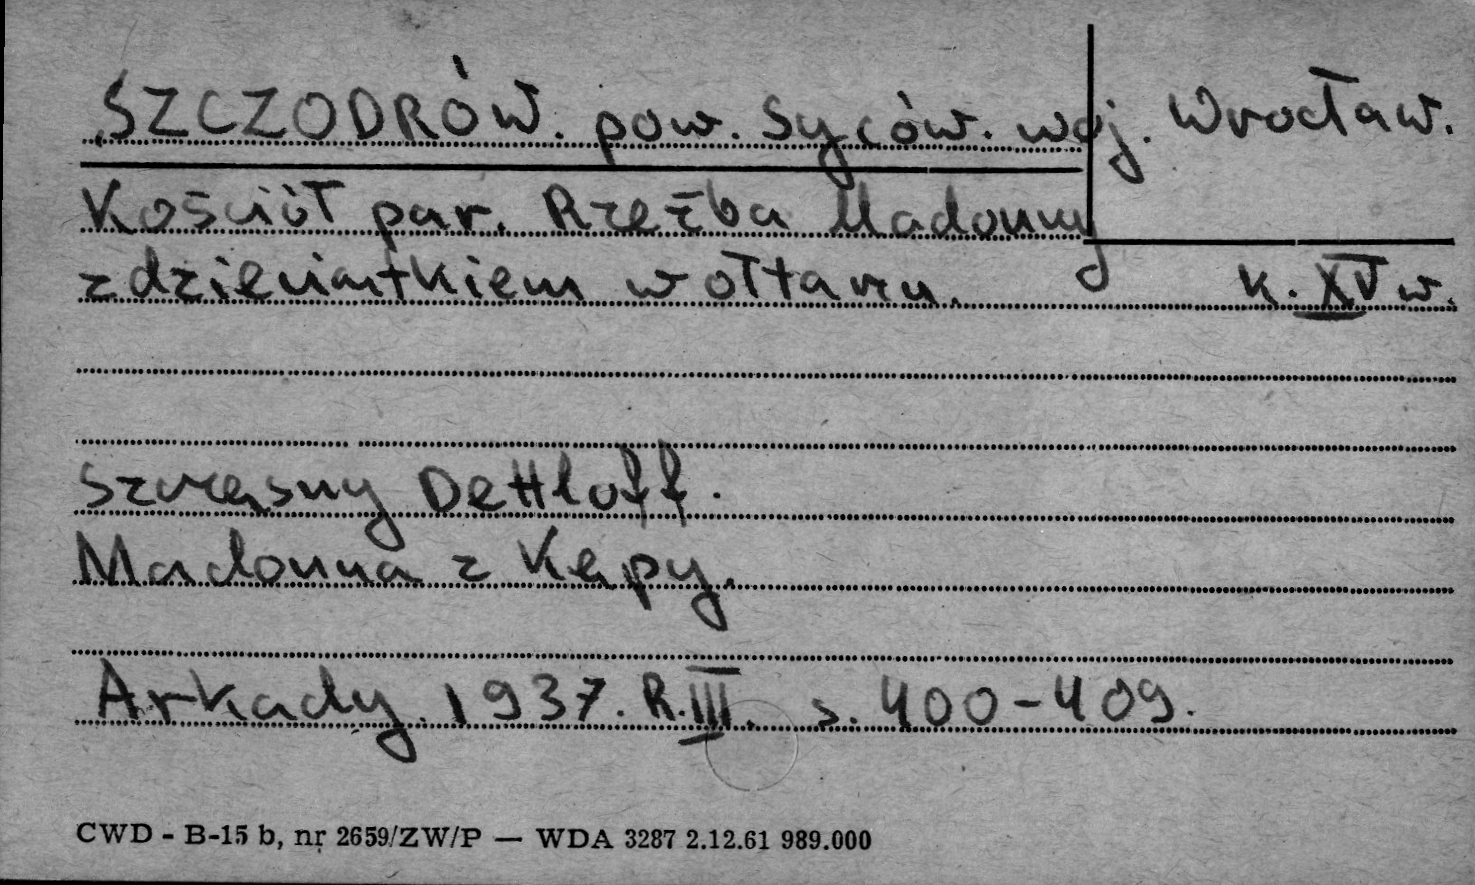 SZCZODRÓW. pow. Syców. woj. Wrocław.
Kościół par. Rzeźba Madonny
z dzieciątkiem w ołtarzu. k. XV w.
Szczęsny Dettloff.
Madonna z Kępy.
Arkady. 1937. R. III. s. 400-409.
CWD - B-15 b, nr 2659/ZW/P — WDA 3287 2.12.61 989.000